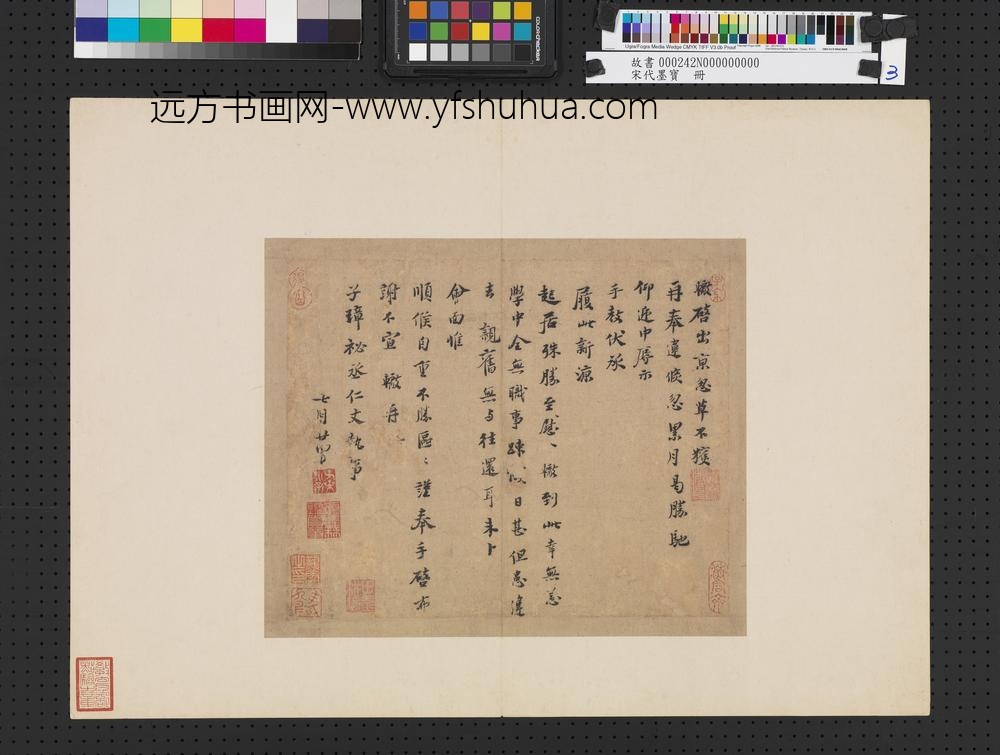 Ugra/Fogra Media Wedge CMYK TIFF V3.0b Proof
故書 000242N000000000
宋代墨寶 冊
3
远方书画网-www.yfshuhua.com
轍啓出京怱草不獲
再奉違倐忽累月曷勝馳
仰迎中辱示
手教伏承
履此新涼
起居殊勝至慰轍到此幸無恙
學中全無職事疎日甚但違
去親舊無與往還耳未卜
會面惟
順候自重不勝區區謹奉手啓布
謝不宣轍再
子璋祕丞仁丈執事
七月廿四日